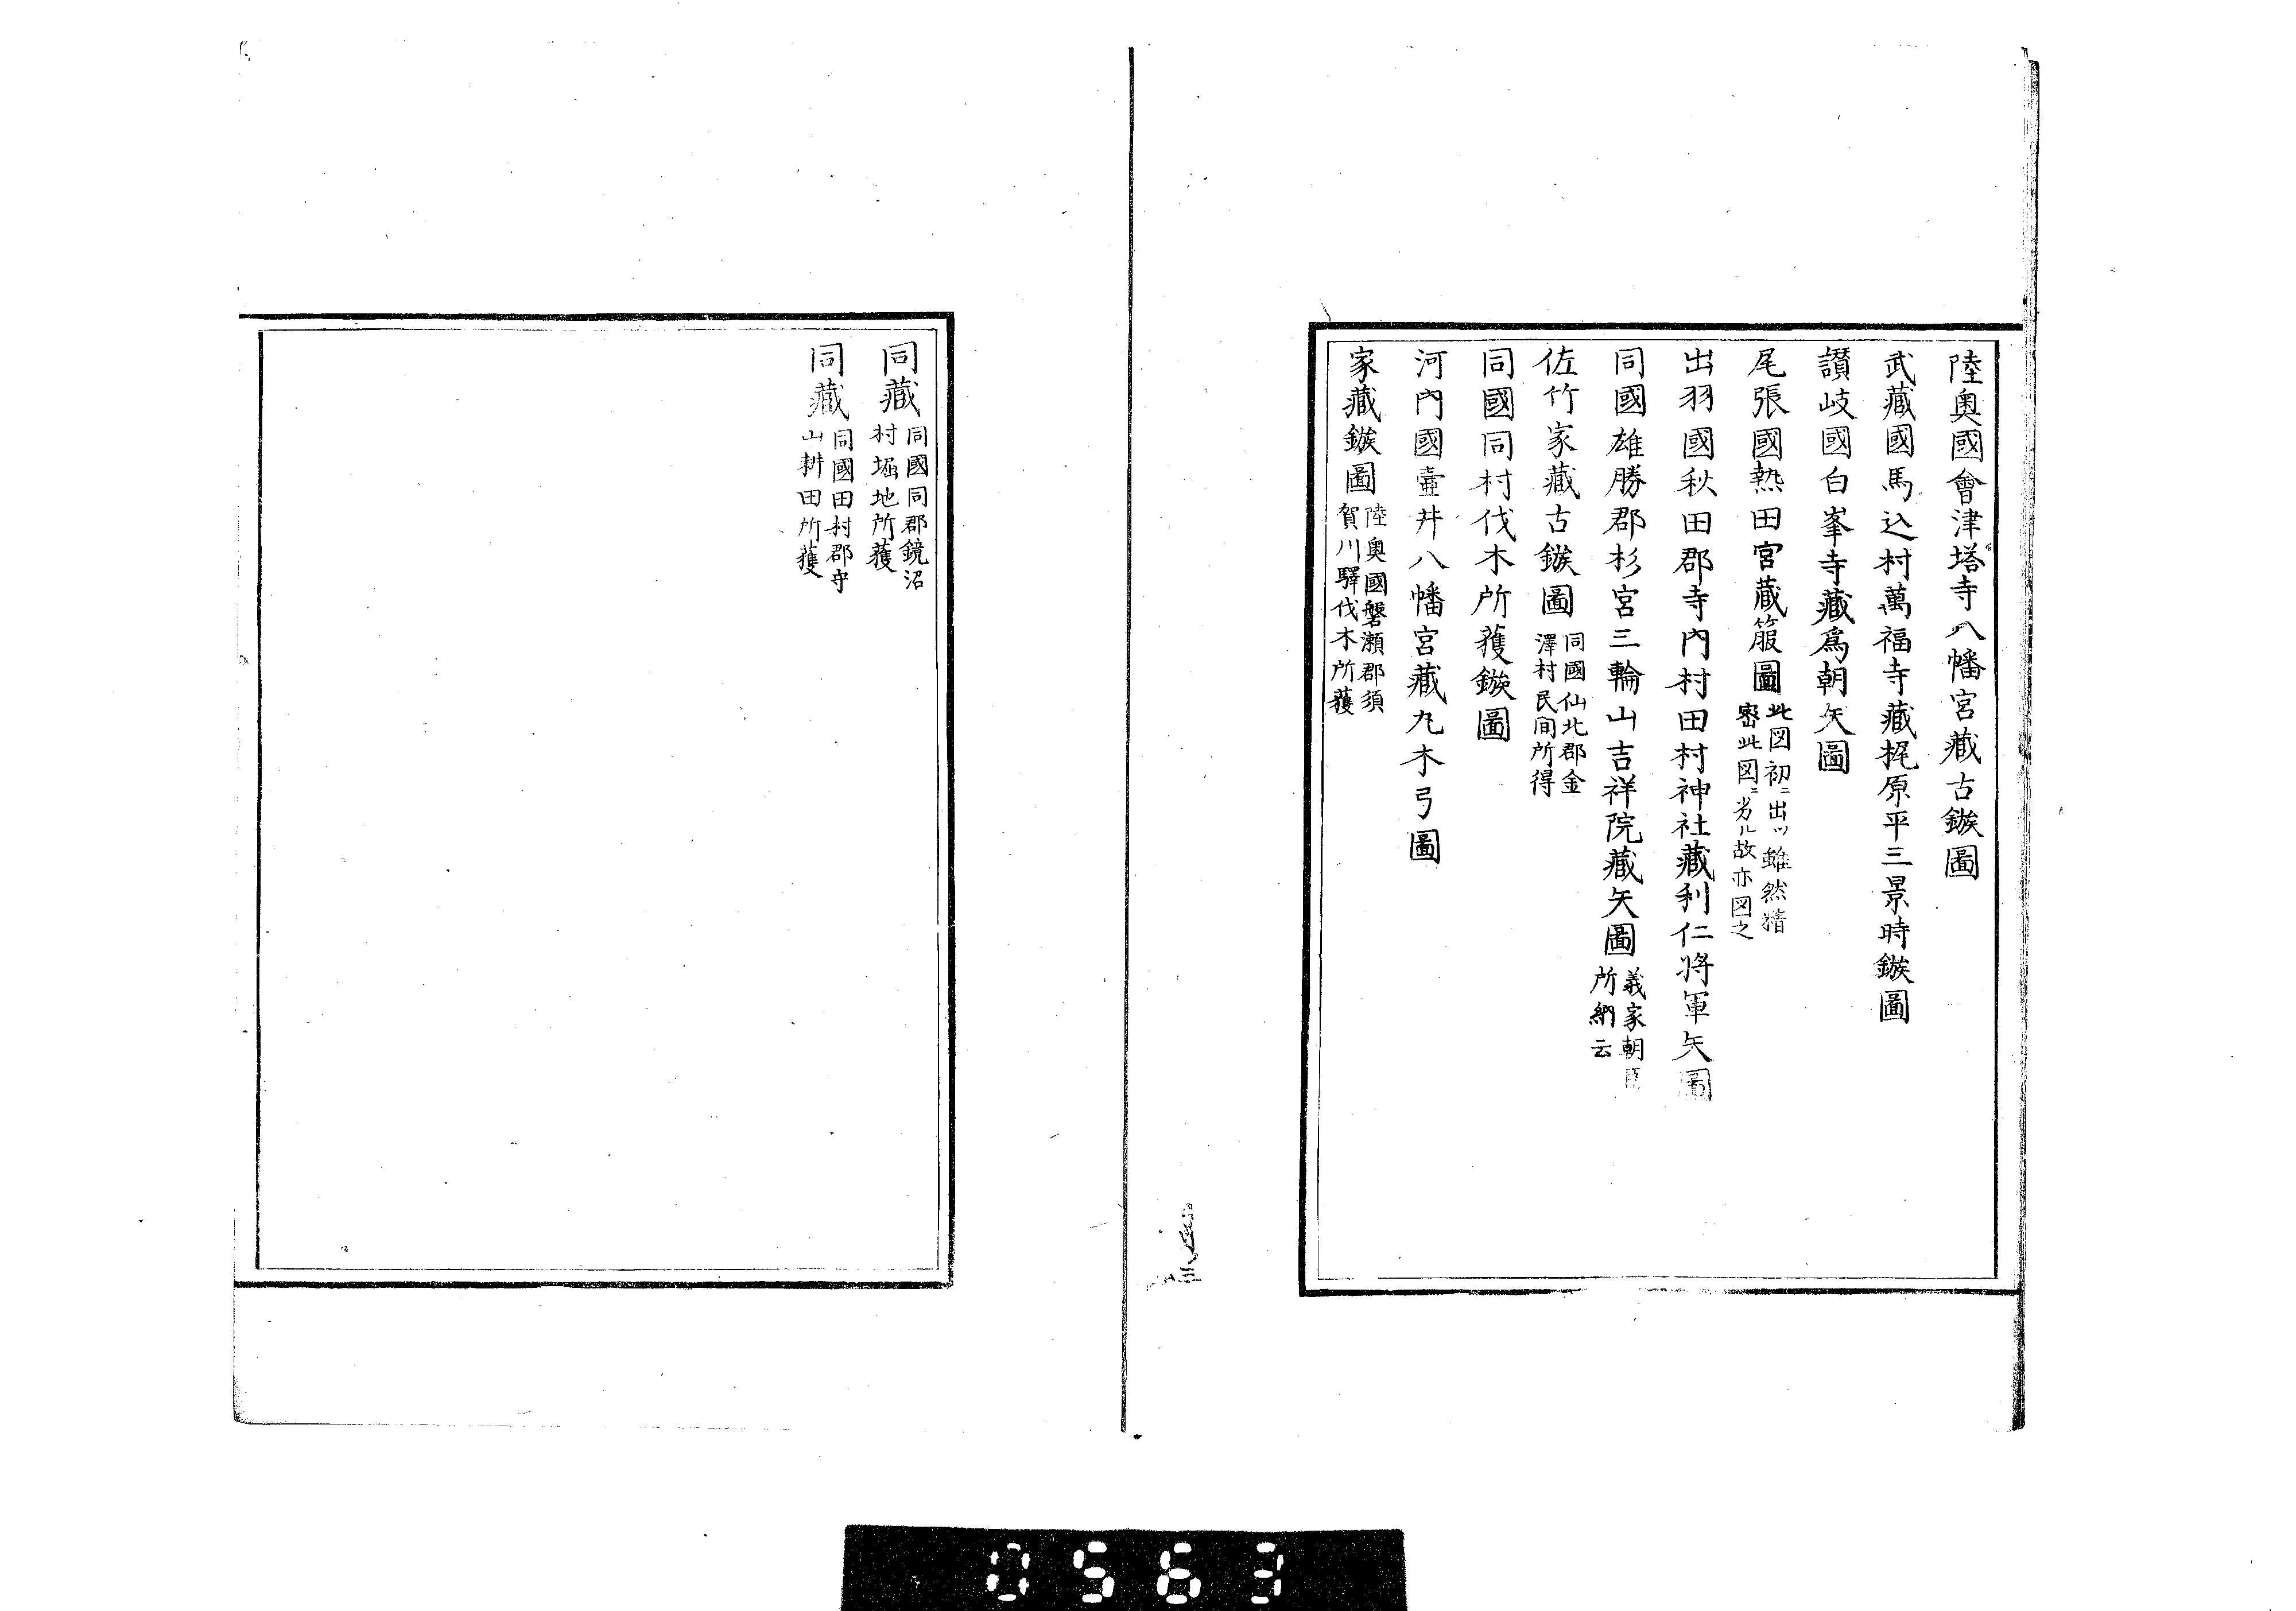 陸奧國會津塔寺八幡宮藏古鏃圖
武藏國馬込村萬福寺藏梶原平三景時鏃圖
讃岐國白峯寺藏爲朝矢圖
尾張國熱田宮藏箙圖
此図初ニ出ツ雖然精
密此図ニ劣ル故亦図之
出羽國秋田郡寺內村田村神社藏利仁將軍矢圖
同國雄勝郡杉宮三輪山吉祥院藏矢圖
義家朝臣
所納云
佐竹家藏古鏃圖
同國仙北郡金
澤村民間所得
同國同村伐木所獲鏃圖
河內國壷井八幡宮藏丸木弓圖
家藏鏃圖
陸奧國磐瀬郡須
賀川驛伐木所獲
同藏
同國同郡鏡沼
村堀地所獲
同藏
同國田村郡守
山耕田所獲
0563